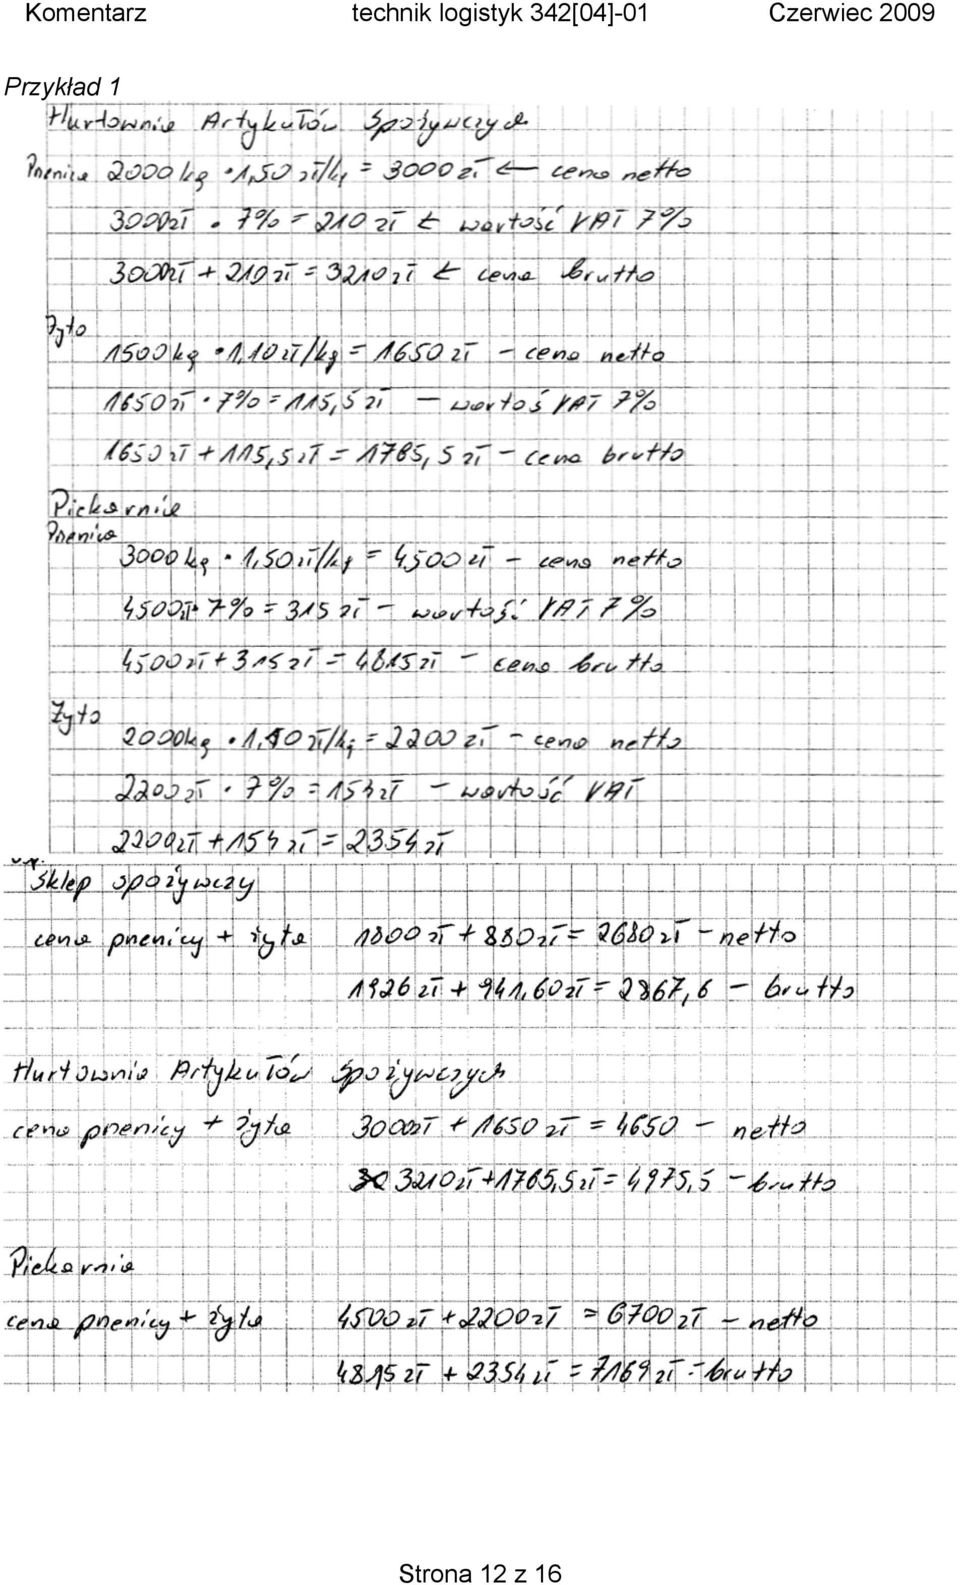 Komentarz technik logistyk 342[04]-01 Czerwiec 2009
Przykład 1
Hurtownia Artykułów Spożywczych
Pszenica 2000 kg · 1,50 zł/kg = 3000 zł ← cena netto
3000zł · 7% = 210 zł ← wartość VAT 7%
3000zł + 210 zł = 3210 zł ← cena brutto
Żyto
1500 kg · 1,10 zł/kg = 1650 zł - cena netto
1650 zł · 7% = 115,5 zł - wartoś VAT 7%
1650 zł + 115,5 zł = 1765,5 zł - cena brutto
Piekarnia
Pszenica
3000 kg · 1,50 zł/kg = 4500 zł - cena netto
4500zł · 7% = 315 zł - wartość VAT 7%
4500 zł + 315 zł = 4815 zł - cena brutto
Żyto
2000kg · 1,10 zł/kg = 2200 zł - cena netto
2200 zł · 7% = 154 zł - wartość VAT
2200zł + 154 zł = 2354 zł
Sklep spożywczy
cena pszenicy + żyta 1800 zł + 880 zł = 2680 zł - netto
1926 zł + 941,60 zł = 2867,6 - brutto
Hurtownia Artykułów Spożywczych
cena pszenicy + żyta 3000zł + 1650 zł = 4650 - netto
3210 zł + 1765,5 zł = 4975,5 - brutto
Piekarnia
cena pszenicy + żyta 4500 zł + 2200 zł = 6700 zł - netto
4815 zł + 2354 zł = 7169 zł - brutto
Strona 12 z 16